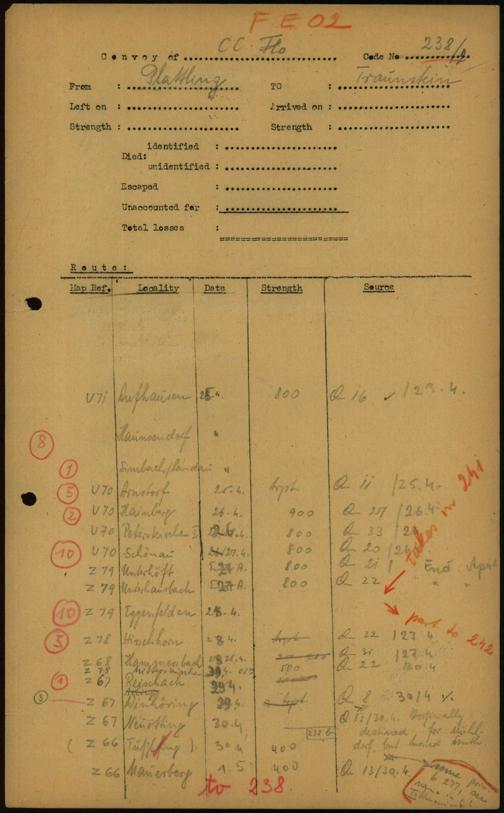 F E 02
Convoy of CC Flo Code No 238/
From : Plattling TO : Traunstein
Left on : Arrived on :
Strength : Strength :
Died: identified :
unidentified :
Escaped :
Unaccounted for :
Total losses :
Route :
Map Ref. Locality Date Strength Source
V71 Aufhausen 25.4. 800 Q 16 ✓ / 29.4.
8
Haunsendorf "
1 Simbach/Landau "
5 V70 Arnstorf 25.4. Q 11 /25.4.
2 V70 Hainberg 26.4. 900 Q 27 /26.4
V70 Peterskirchen 26.4. 800 Q 33 /2
10 V70 Schönau 26/27.4. 800 Q 20 /26
Z 79 Unterhöft 27.4. 800 Q 21 / End April
Z 79 Unterhausbach 27.4. 800 Q 22 " "
taken in 241
10 Z 79 Eggenfelden 28.4.
part to 242
3 Z 78 Hirschhorn 28.4. Q 22 /27.4.
Z 68 28.4. Q 21 127.4.
Z 78 500 Q 22 130.4
1 Z 67 Reischach 29.4.
3 Z 67 Winhöring 29.4. Q 8 30/4
Z 67 Neuötting 30.4. 238 b Q 13/30.4. Originally
destined for Mühl-
dorf, but marched south
( Z 66 Tüßling ) 30.4 400
Z 66 Mauerberg 1.5 400 Q 13/30.4.
to 238
some